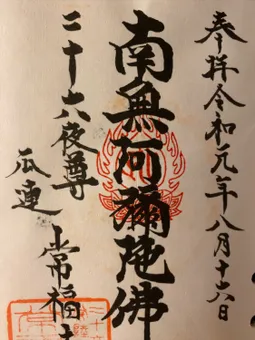 奉拝令和元年八月十六日
南無阿彌陀佛
二十六夜尊
瓜連 常福